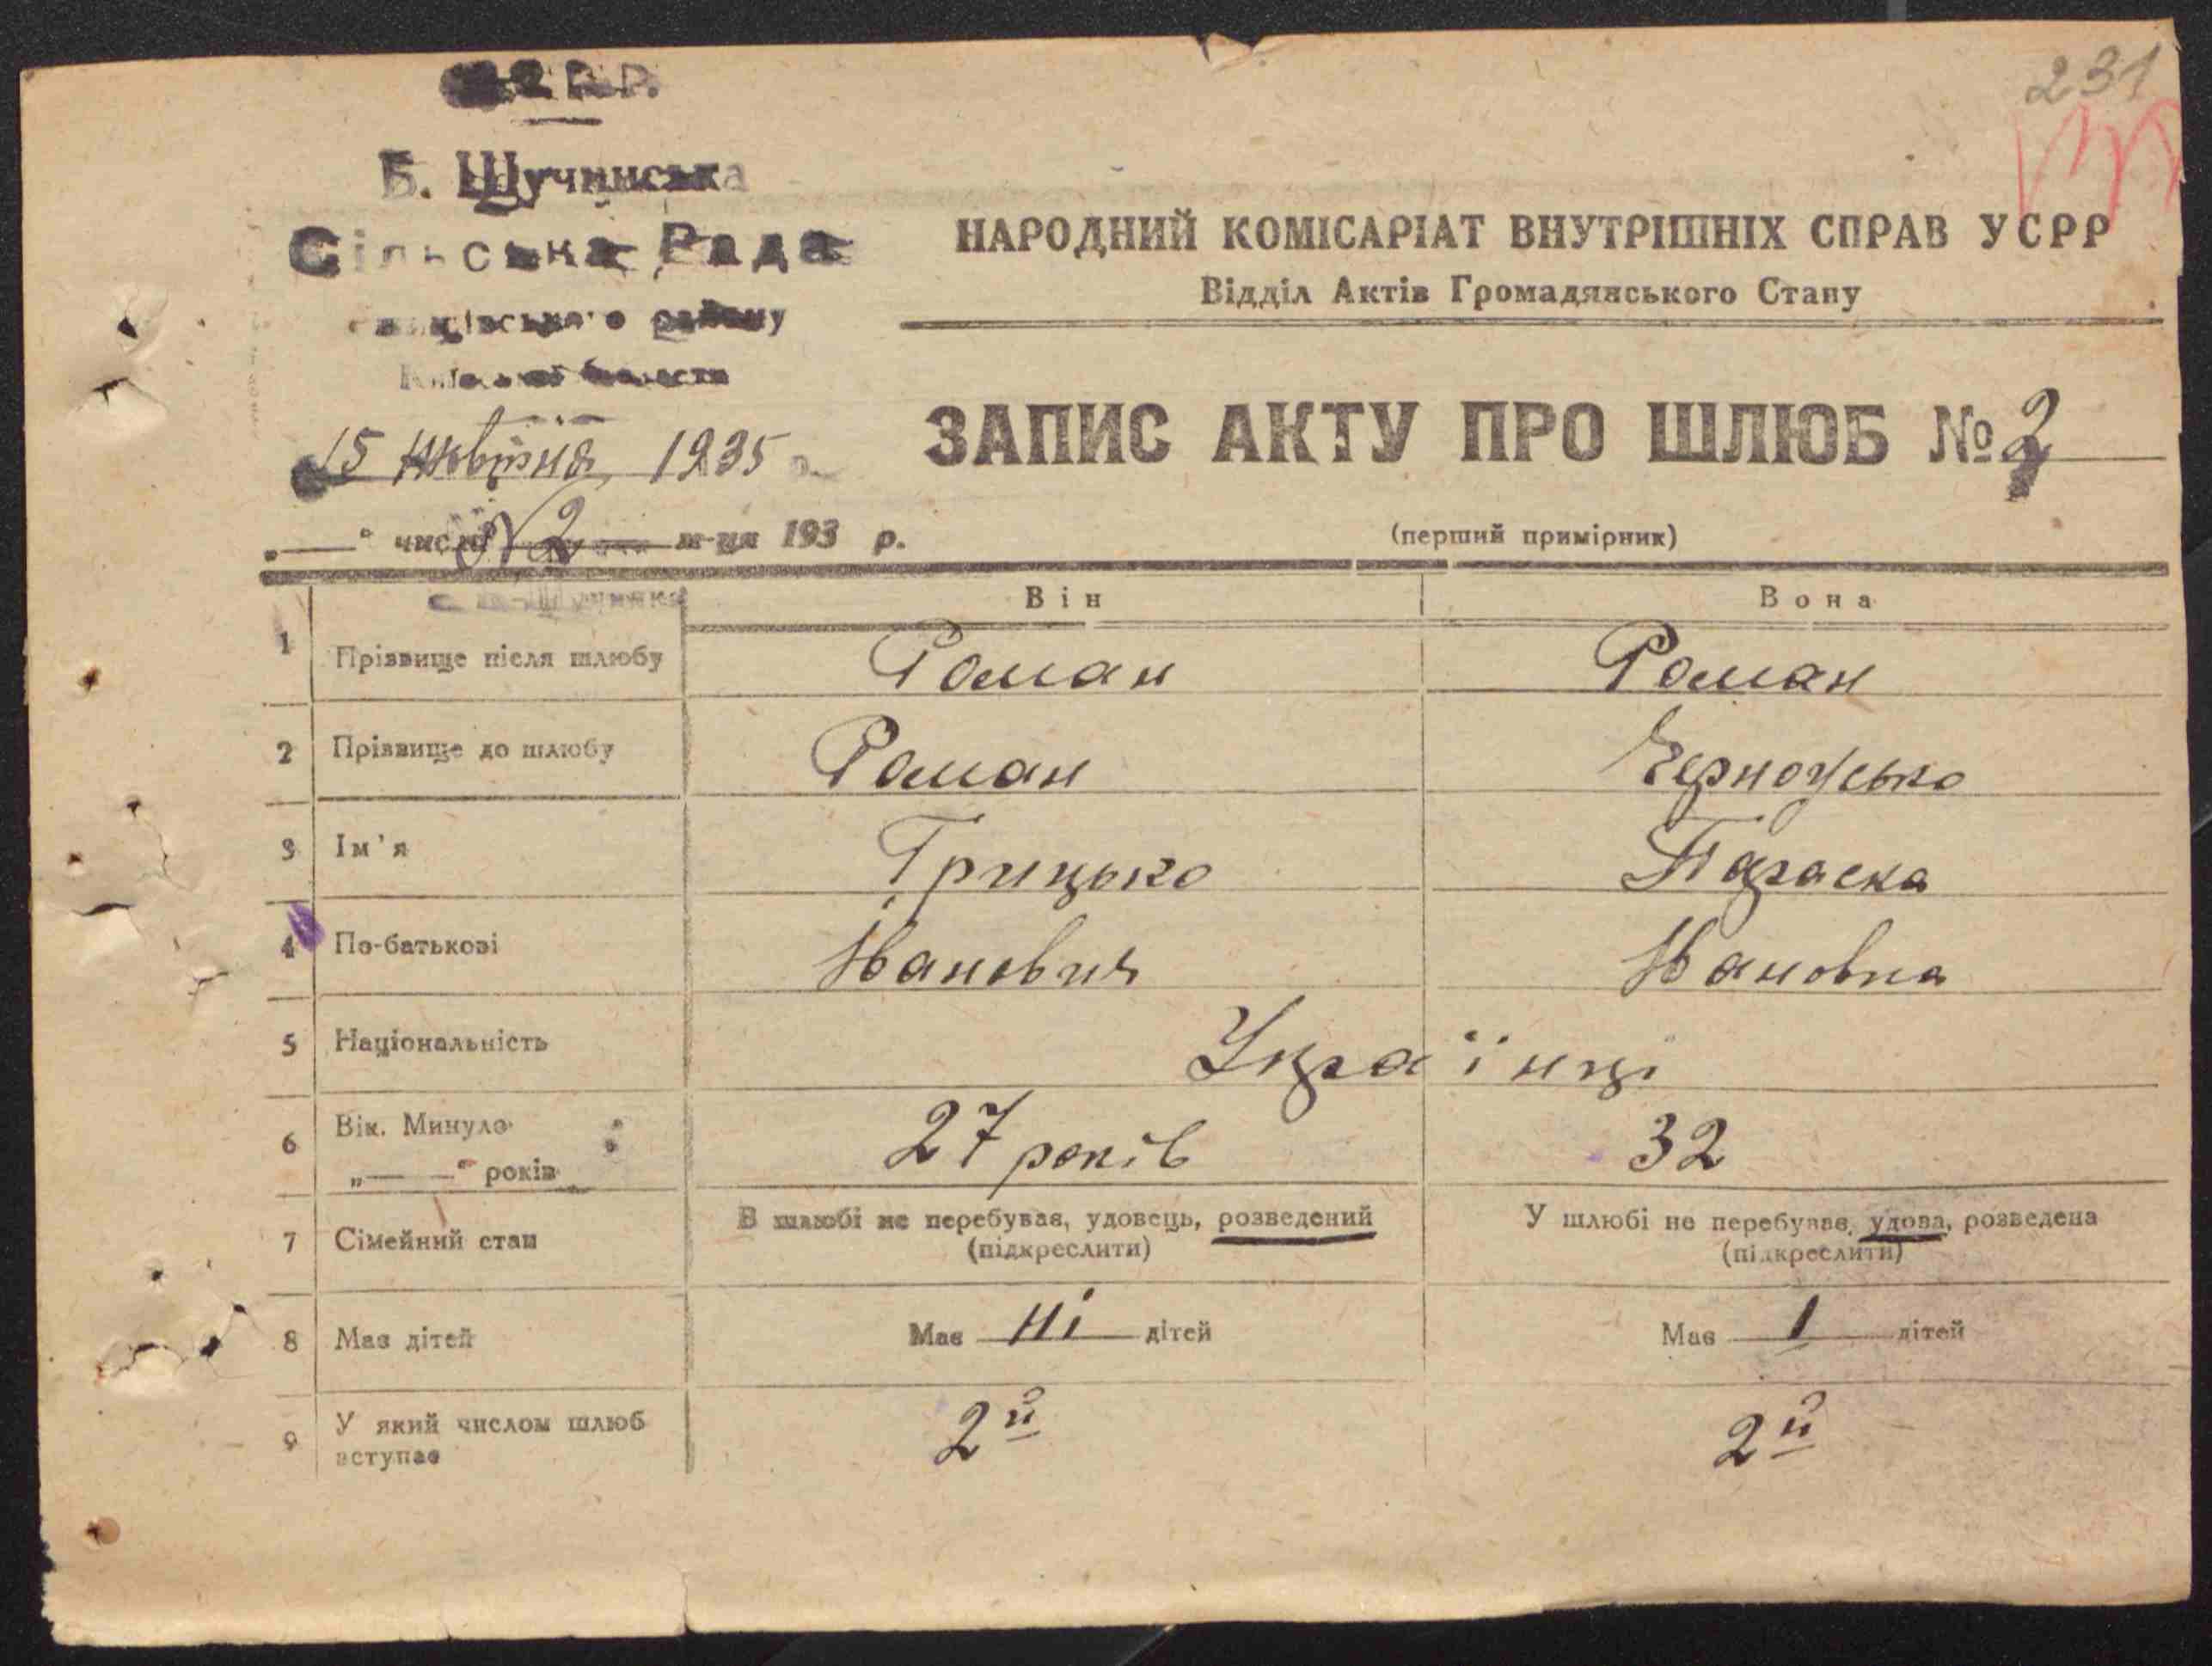 231
Б. Щучинська
Сільська Рада
району
15 жовтня 1935
НАРОДНИЙ КОМІСАРІАТ ВНУТРІШНІХ СПРАВ УСРР
Відділ Актів Громадянського Стану
ЗАПИС АКТУ ПРО ШЛЮБ № 2
„—“ числа № 2 м-ця 193 р.
(перший примірник)
Він Вона
1 Прізвище після шлюбу Роман Роман
2 Прізвище до шлюбу Роман Черноусько
3 Ім'я Грицько Параска
4 По-батькові Іванович Івановна
5 Національність Українці
6 Вік. Минуло 27 років 32
„— —“ років
7 Сімейний стан В шлюбі не перебував, удовець, розведений У шлюбі не перебував, удова, розведена
(підкреслити) (підкреслити)
8 Має дітей Має ні дітей Має 1 дітей
9 У який числом шлюб 2й 2й
вступає